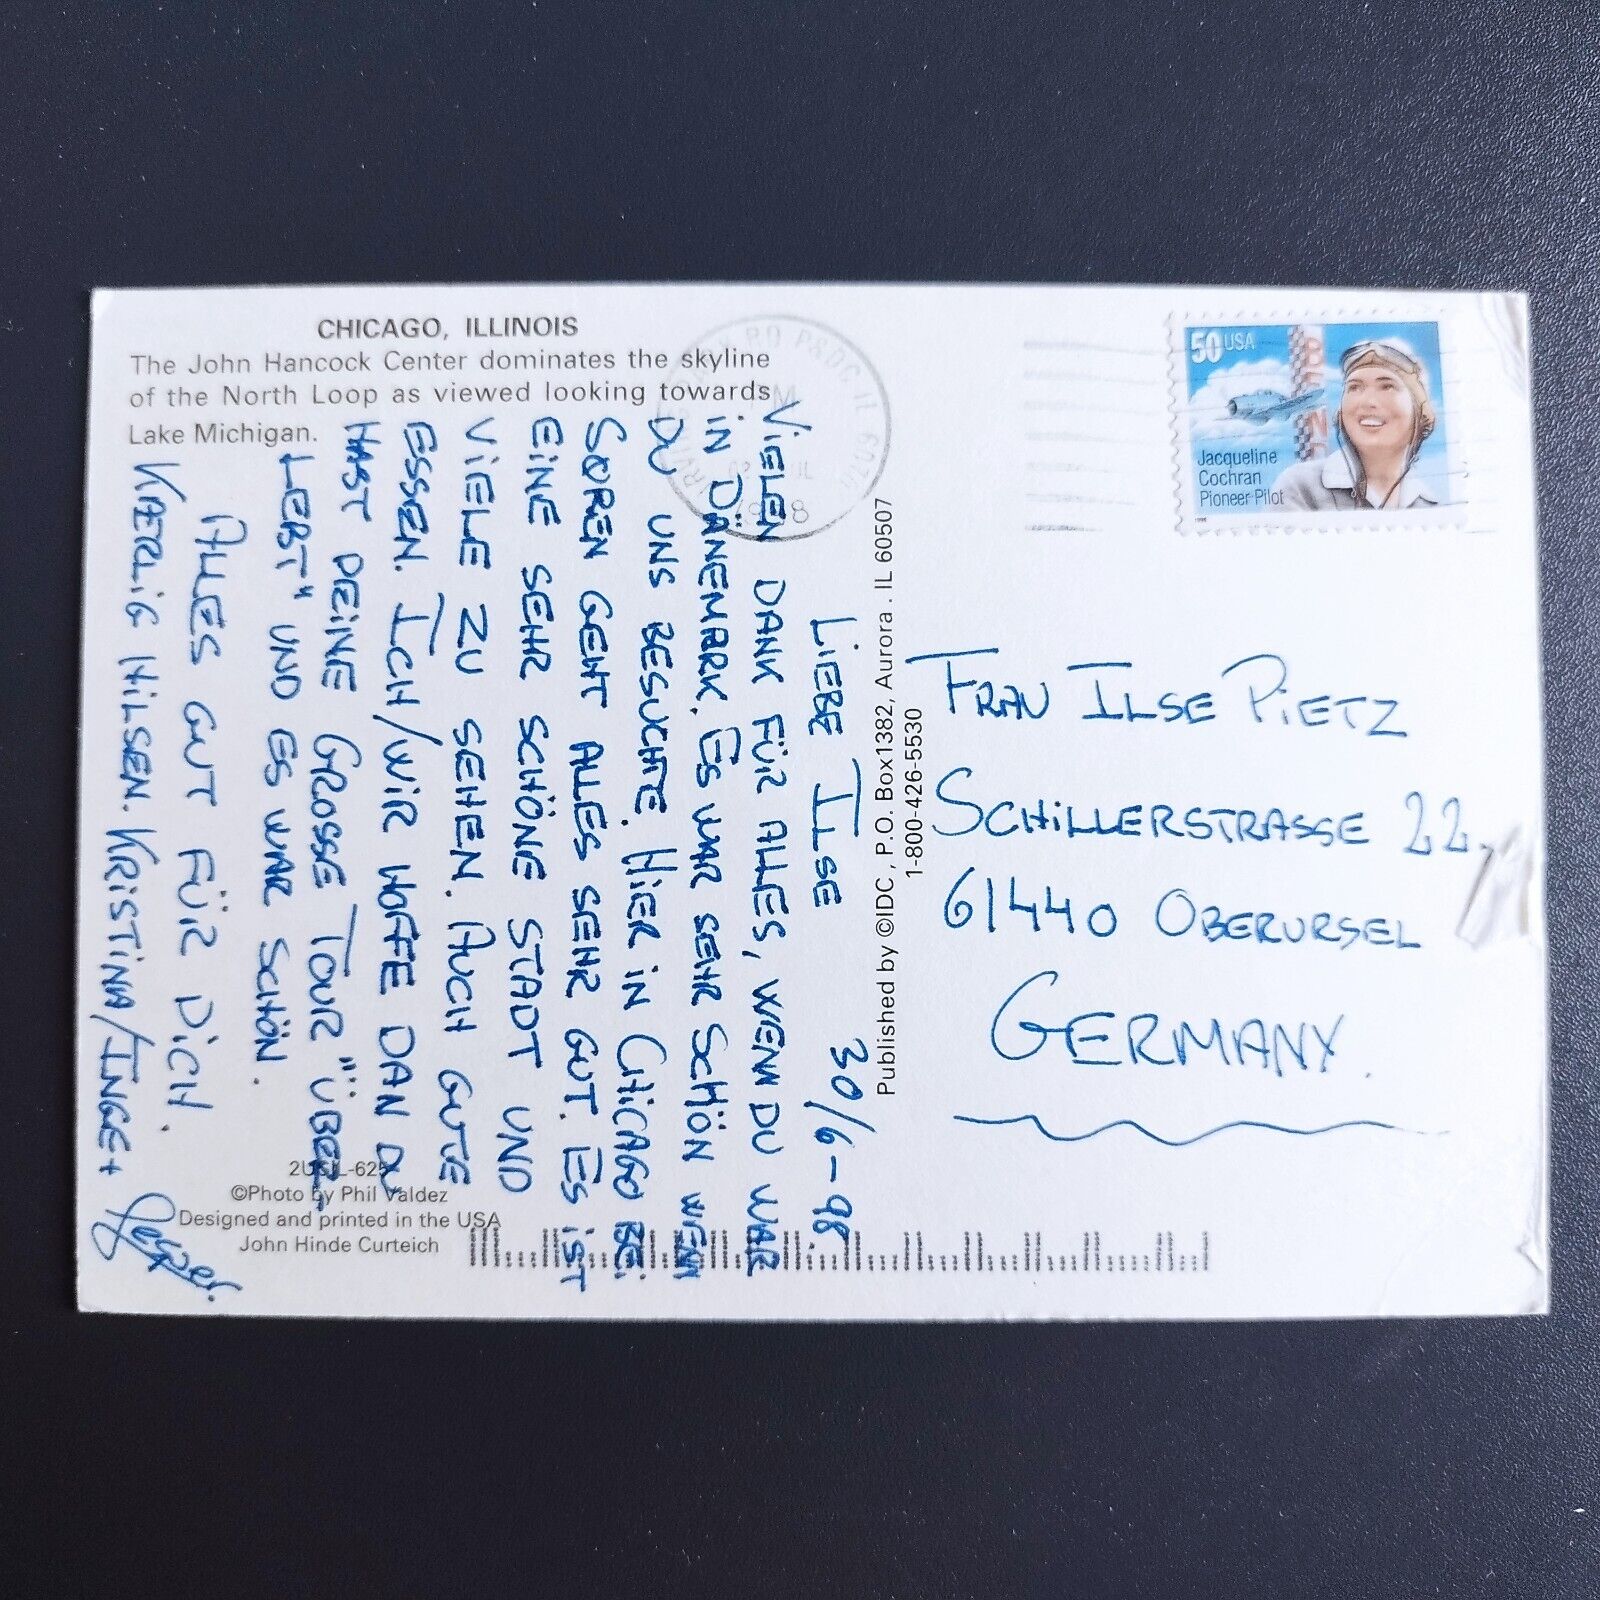 CHICAGO, ILLINOIS
The John Hancock Center dominates the skyline
of the North Loop as viewed looking towards
Lake Michigan.
30/6-98.
LIEBE ILSE
VIELEN DANK FÜR ALLES, WENN DU WAR
IN DÄNEMARK. ES WAR SEHR SCHÖN WENN
DU UNS BESUCHTE. HIER IN CHICAGO BEI
SØREN GEHT ALLES SEHR GUT. ES IST
EINE SEHR SCHÖNE STADT UND
VIELE ZU SEHEN. AUCH GUTE
ESSEN. ICH/WIR HOFFE DAN DU
HAST DEINE GROSSE TOUR "ÜBER
LEBT" UND ES WAR SCHÖN.
ALLES GUT FÜR DICH.
KAERLIG HILSEN. KRISTINA/INGE+
Jesper.
2USIL-625
©Photo by Phil Valdez
Designed and printed in the USA
John Hinde Curteich
Published by ©IDC, P.O. Box1382, Aurora. IL 60507
1-800-426-5530
RD P&DC IL
PM
1998
50 USA
BEN
Jacqueline
Cochran
Pioneer Pilot
1996
FRAU ILSE PIETZ
SCHILLERSTRASSE 22,
61440 OBERURSEL
GERMANY.